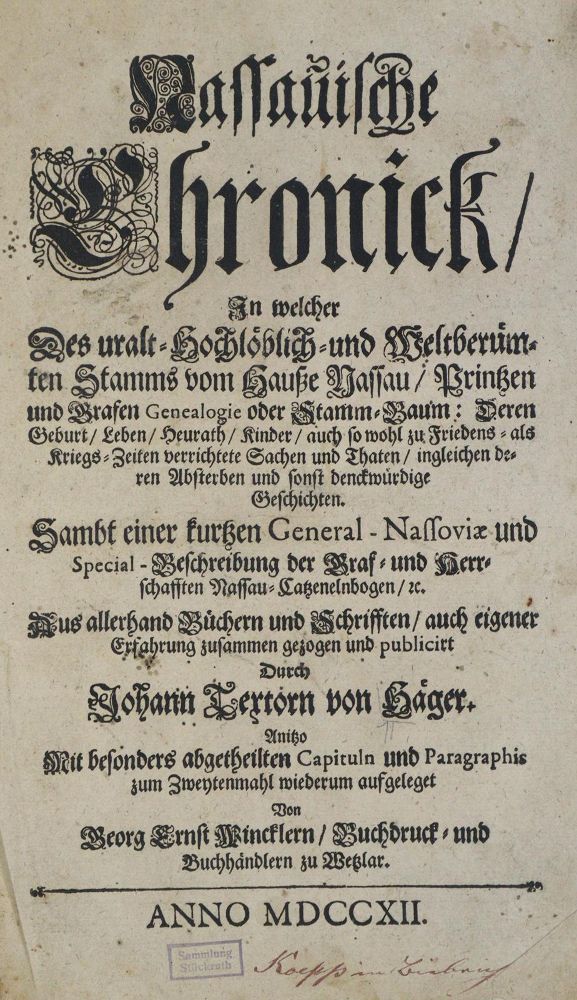 Nassaüische
Chronick/
In welcher
Des uralt-Hochlöblich-und Weltberüm-
ten Stamms vom Hauße Nassau/ Printzen
und Grafen Genealogie oder Stamm-Baum: Deren
Geburt/ Leben/ Heurath/ Kinder/ auch so wohl zu Friedens-als
Kriegs-Zeiten verrichtete Sachen und Thaten/ ingleichen de-
ren Absterben und sonst denckwürdige
Geschichten.
Sambt einer kurtzen General-Nassoviæ und
Special-Beschreibung der Graf-und Herr-
schafften Nassau-Catzenelnbogen/ ꝛc.
Aus allerhand Büchern und Schrifften/ auch eigener
Erfahrung zusammen gezogen und publicirt
Durch
Johann Textorn von Häger.
Anitzo
Mit besonders abgetheilten Capituln und Paragraphis
zum Zweytenmahl wiederum aufgeleget
Von
Georg Ernst Wincklern/ Buchdruck-und
Buchhändlern zu Wetzlar.
ANNO MDCCXII.
Sammlung
Stückrath
Koepp in Biebrich